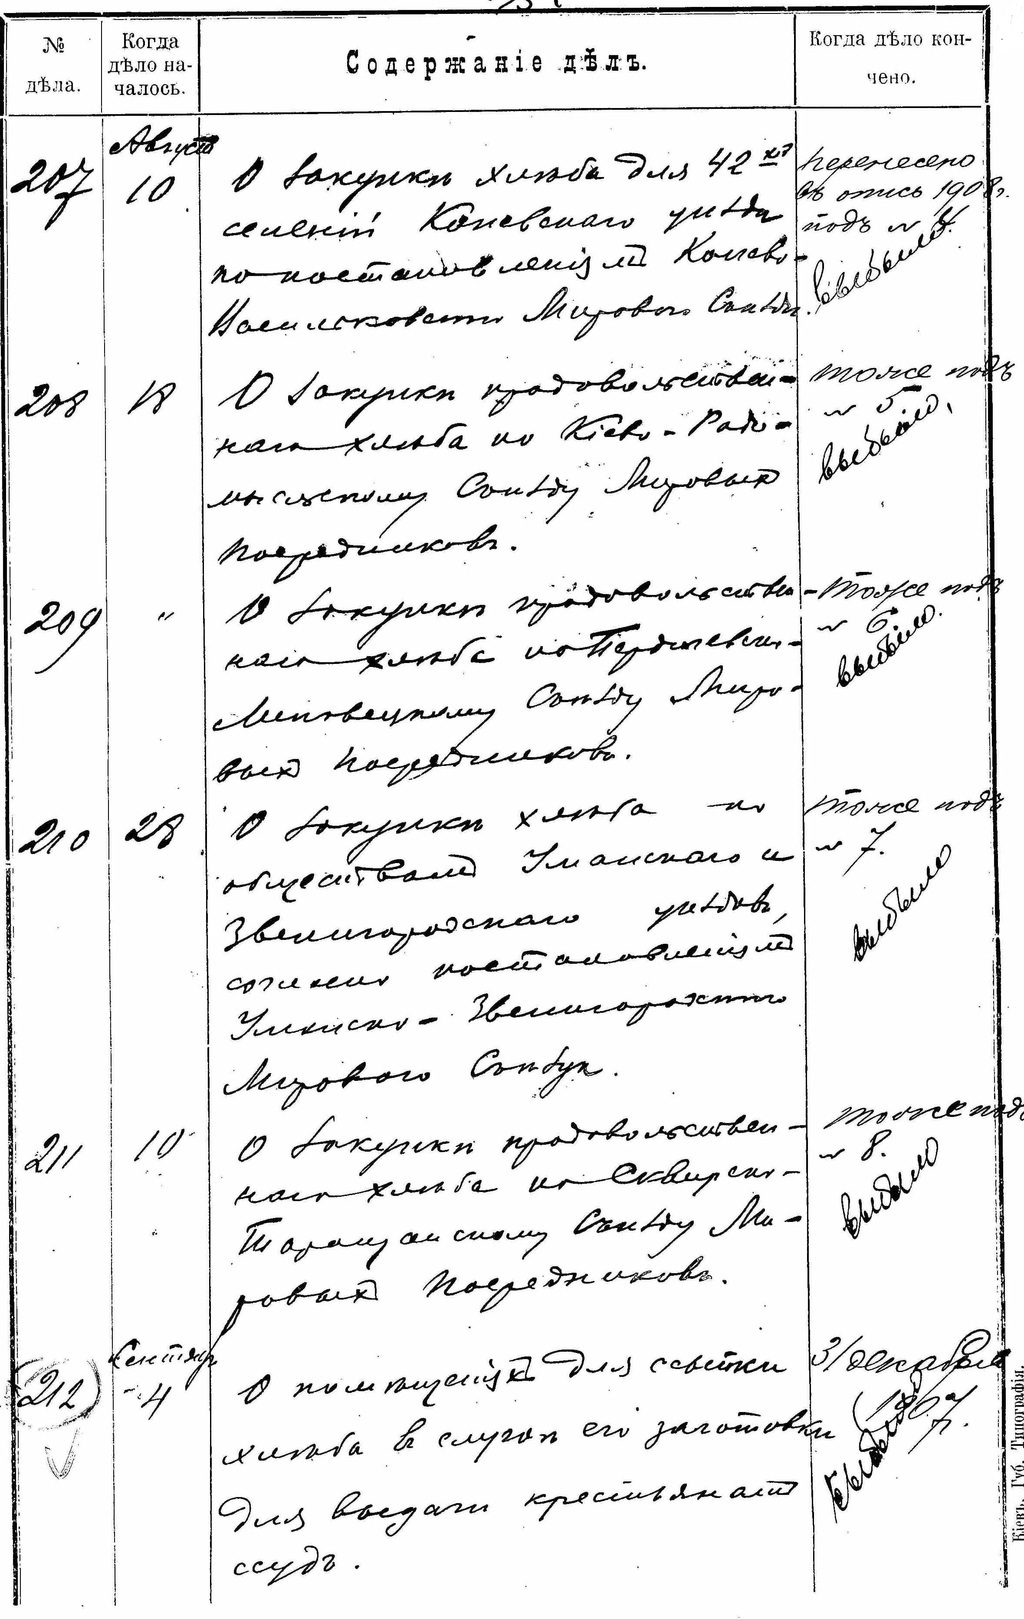 № дѣла.
Когда дѣло началось.
Содержаніе дѣлъ.
Когда дѣло кончено.
207
Августъ
10
О закупки хлѣба для 42хъ
селеній Каневскаго уѣзда
по постановленіямъ Канево-
Васильковскаго Мирового Съѣзда.
Перенесено
въ опись 1908 г.
подъ №
выбыло
208
18
О закупки продовольствен-
наго хлѣба по Кіево-Радо-
мысльскому Съѣзду Мировыхъ
Посредниковъ.
тоже подъ
№ 5
выбыло
209
"
О закупки продовольствен-
наго хлѣба по Бердичевско-
Липовецкому Съѣзду Миро-
выхъ Посредниковъ.
тоже подъ
№ 6
выбыло.
210
28
О закупки хлѣба по
обществамъ Уманскаго и
Звенигородскаго уѣздовъ,
согласно постановленіямъ
Уманско-Звенигородскаго
Мирового Съѣзда.
тоже подъ
№ 7.
выбыло
211
10
О закупки продовольствен-
наго хлѣба по Сквирско-
Таращанскому Съѣзду Ми-
ровыхъ Посредниковъ.
тоже подъ
№ 8.
выбыло
212
Сентябр
4
О помѣщеніяхъ для ссыпки
хлѣба в случаѣ его заготовки
для выдачи крестьянамъ
ссудъ.
31 декабря
1907.
выбыло
Кіевъ. Губ. Типографія.